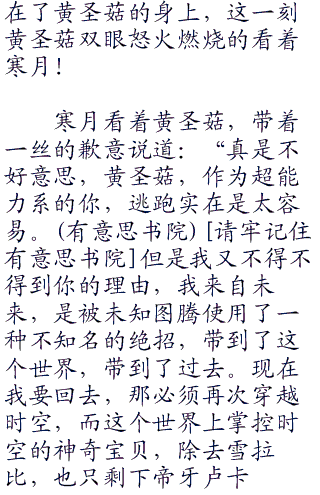 在了黄圣菇的身上，这一刻
黄圣菇双眼怒火燃烧的看着
寒月！
寒月看着黄圣菇，带着
一丝的歉意说道：“真是不
好意思，黄圣菇，作为超能
力系的你，逃跑实在是太容
易。(有意思书院)[请牢记住
有意思书院]但是我又不得不
得到你的理由，我来自未
来，是被未知图腾使用了一
种不知名的绝招，带到了这
个世界，带到了过去。现在
我要回去，那必须再次穿越
时空，而这个世界上掌控时
空的神奇宝贝，除去雪拉
比，也只剩下帝牙卢卡